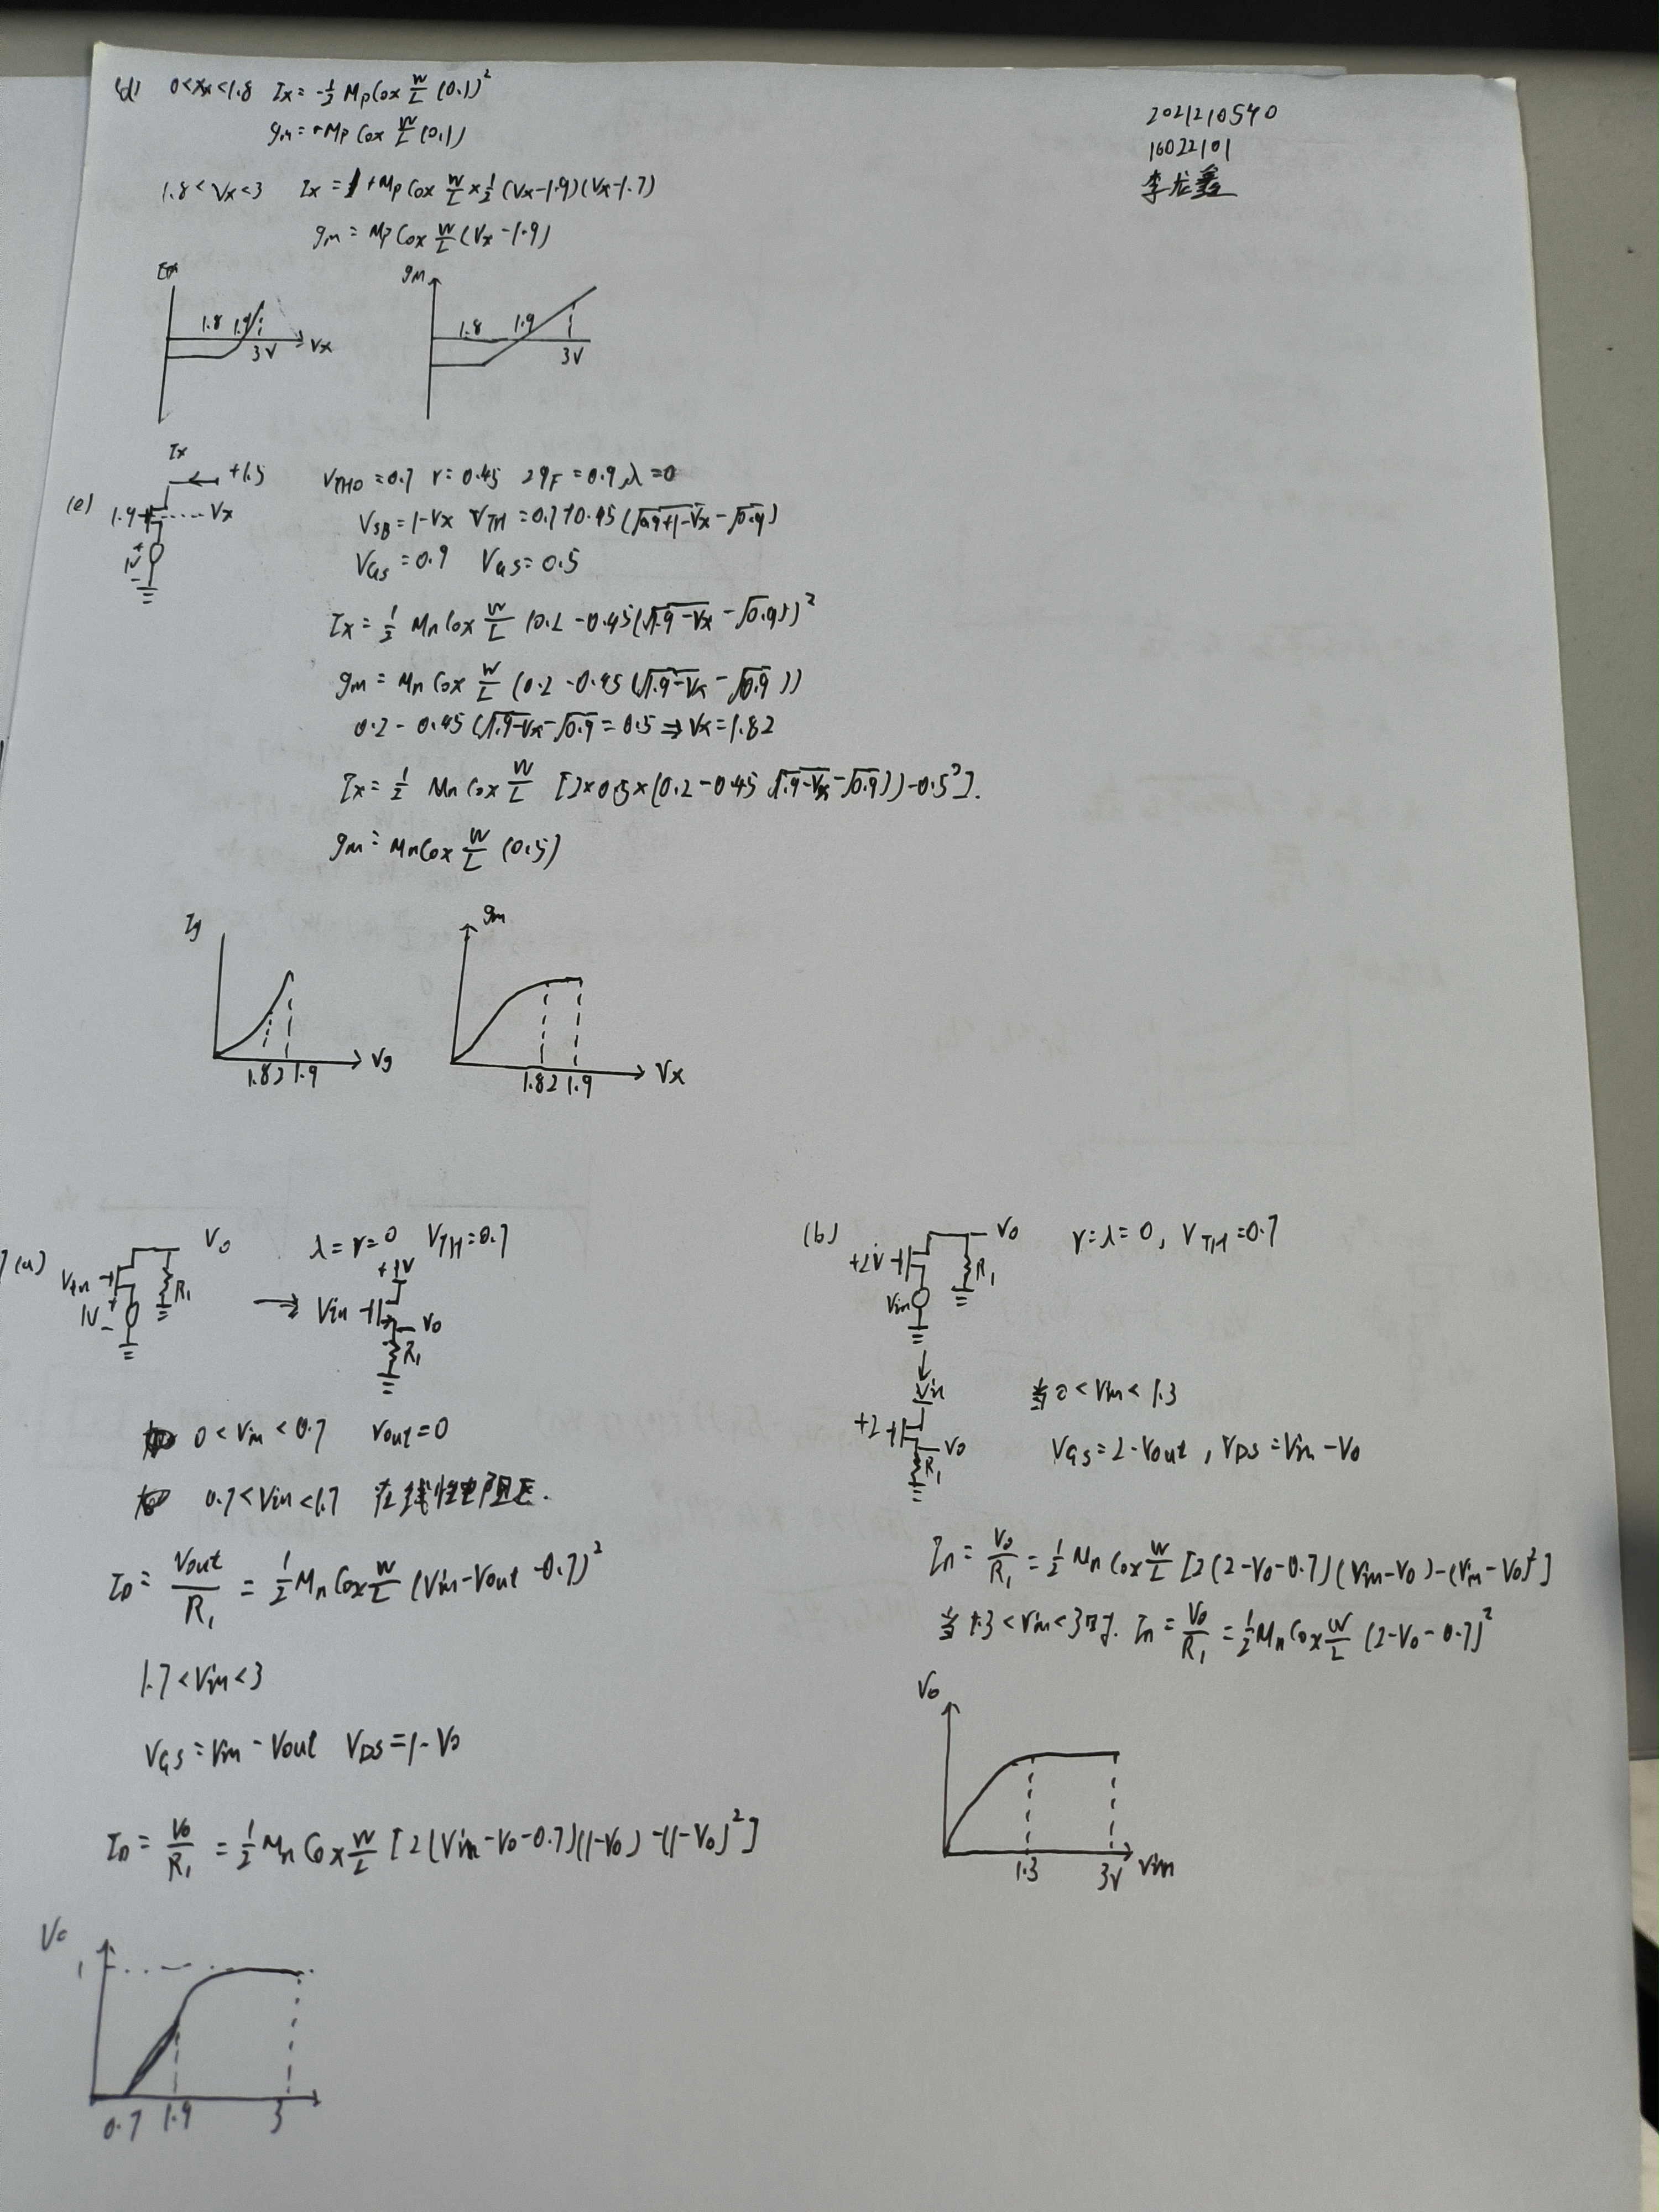 (d) 0<Vx<1.8 Ix = -½ μpCox W/L (0.1)²
gm = -μp Cox W/L (0.1)
1.8<Vx<3 Ix = +μp Cox W/L × ½ (Vx-1.9)(Vx-1.7)
gm = μp Cox W/L (Vx-1.9)
2021210540
16022101
李龙鑫
1.8 1.9 3V Vx
gm
1.8 1.9 3V
(e)
Ix
+1.5
1.9
Vx
1V
+
-
VTH0=0.7 r=0.45 2φF=0.9 λ=0
VSB=1-Vx VTH=0.7+0.45(√0.9+1-Vx-√0.9)
VGS=0.9 VGS=0.5
Ix = ½ μnCox W/L (0.2-0.45(√1.9-Vx-√0.9))²
gm = μnCox W/L (0.2-0.45(√1.9-Vx-√0.9))
0.2-0.45(√1.9-Vx-√0.9=0.5⇒Vx=1.82
Ix = ½ μnCox W/L [2×0.5×(0.2-0.45√1.9-Vx-√0.9))-0.5²].
gm = μnCox W/L (0.5)
Ig
1.82 1.9 Vg
gm
1.82 1.9 Vx
7(a)
Vo
Vin
1V
+
-
R1
→
λ=r=0 VTH=0.7
+1V
Vin
Vo
R1
0<Vin<0.7 Vout=0
0.7<Vin<1.7
ID = Vout/R1 = ½ μnCox W/L (Vin-Vout-0.7)²
1.7<Vin<3
VGS=Vin-Vout VDS=1-Vo
ID = Vo/R1 = ½ μn Cox W/L [2(Vin-Vo-0.7)(1-Vo)-(1-Vo)²]
Vo
1
0.7 1.9 3
(b)
Vo
+2V
R1
Vin
r=λ=0, VTH=0.7
↓
Vin
+2
Vo
R1
当0<Vin<1.3
VGS=2-Vout, VDS=Vin-Vo
ID = Vo/R1 = ½ μn Cox W/L [2(2-Vo-0.7)(Vin-Vo)-(Vin-Vo)²]
当1.3<Vin<3时. ID = Vo/R1 = ½ μnCox W/L (2-Vo-0.7)²
Vo
1.3 3V Vin